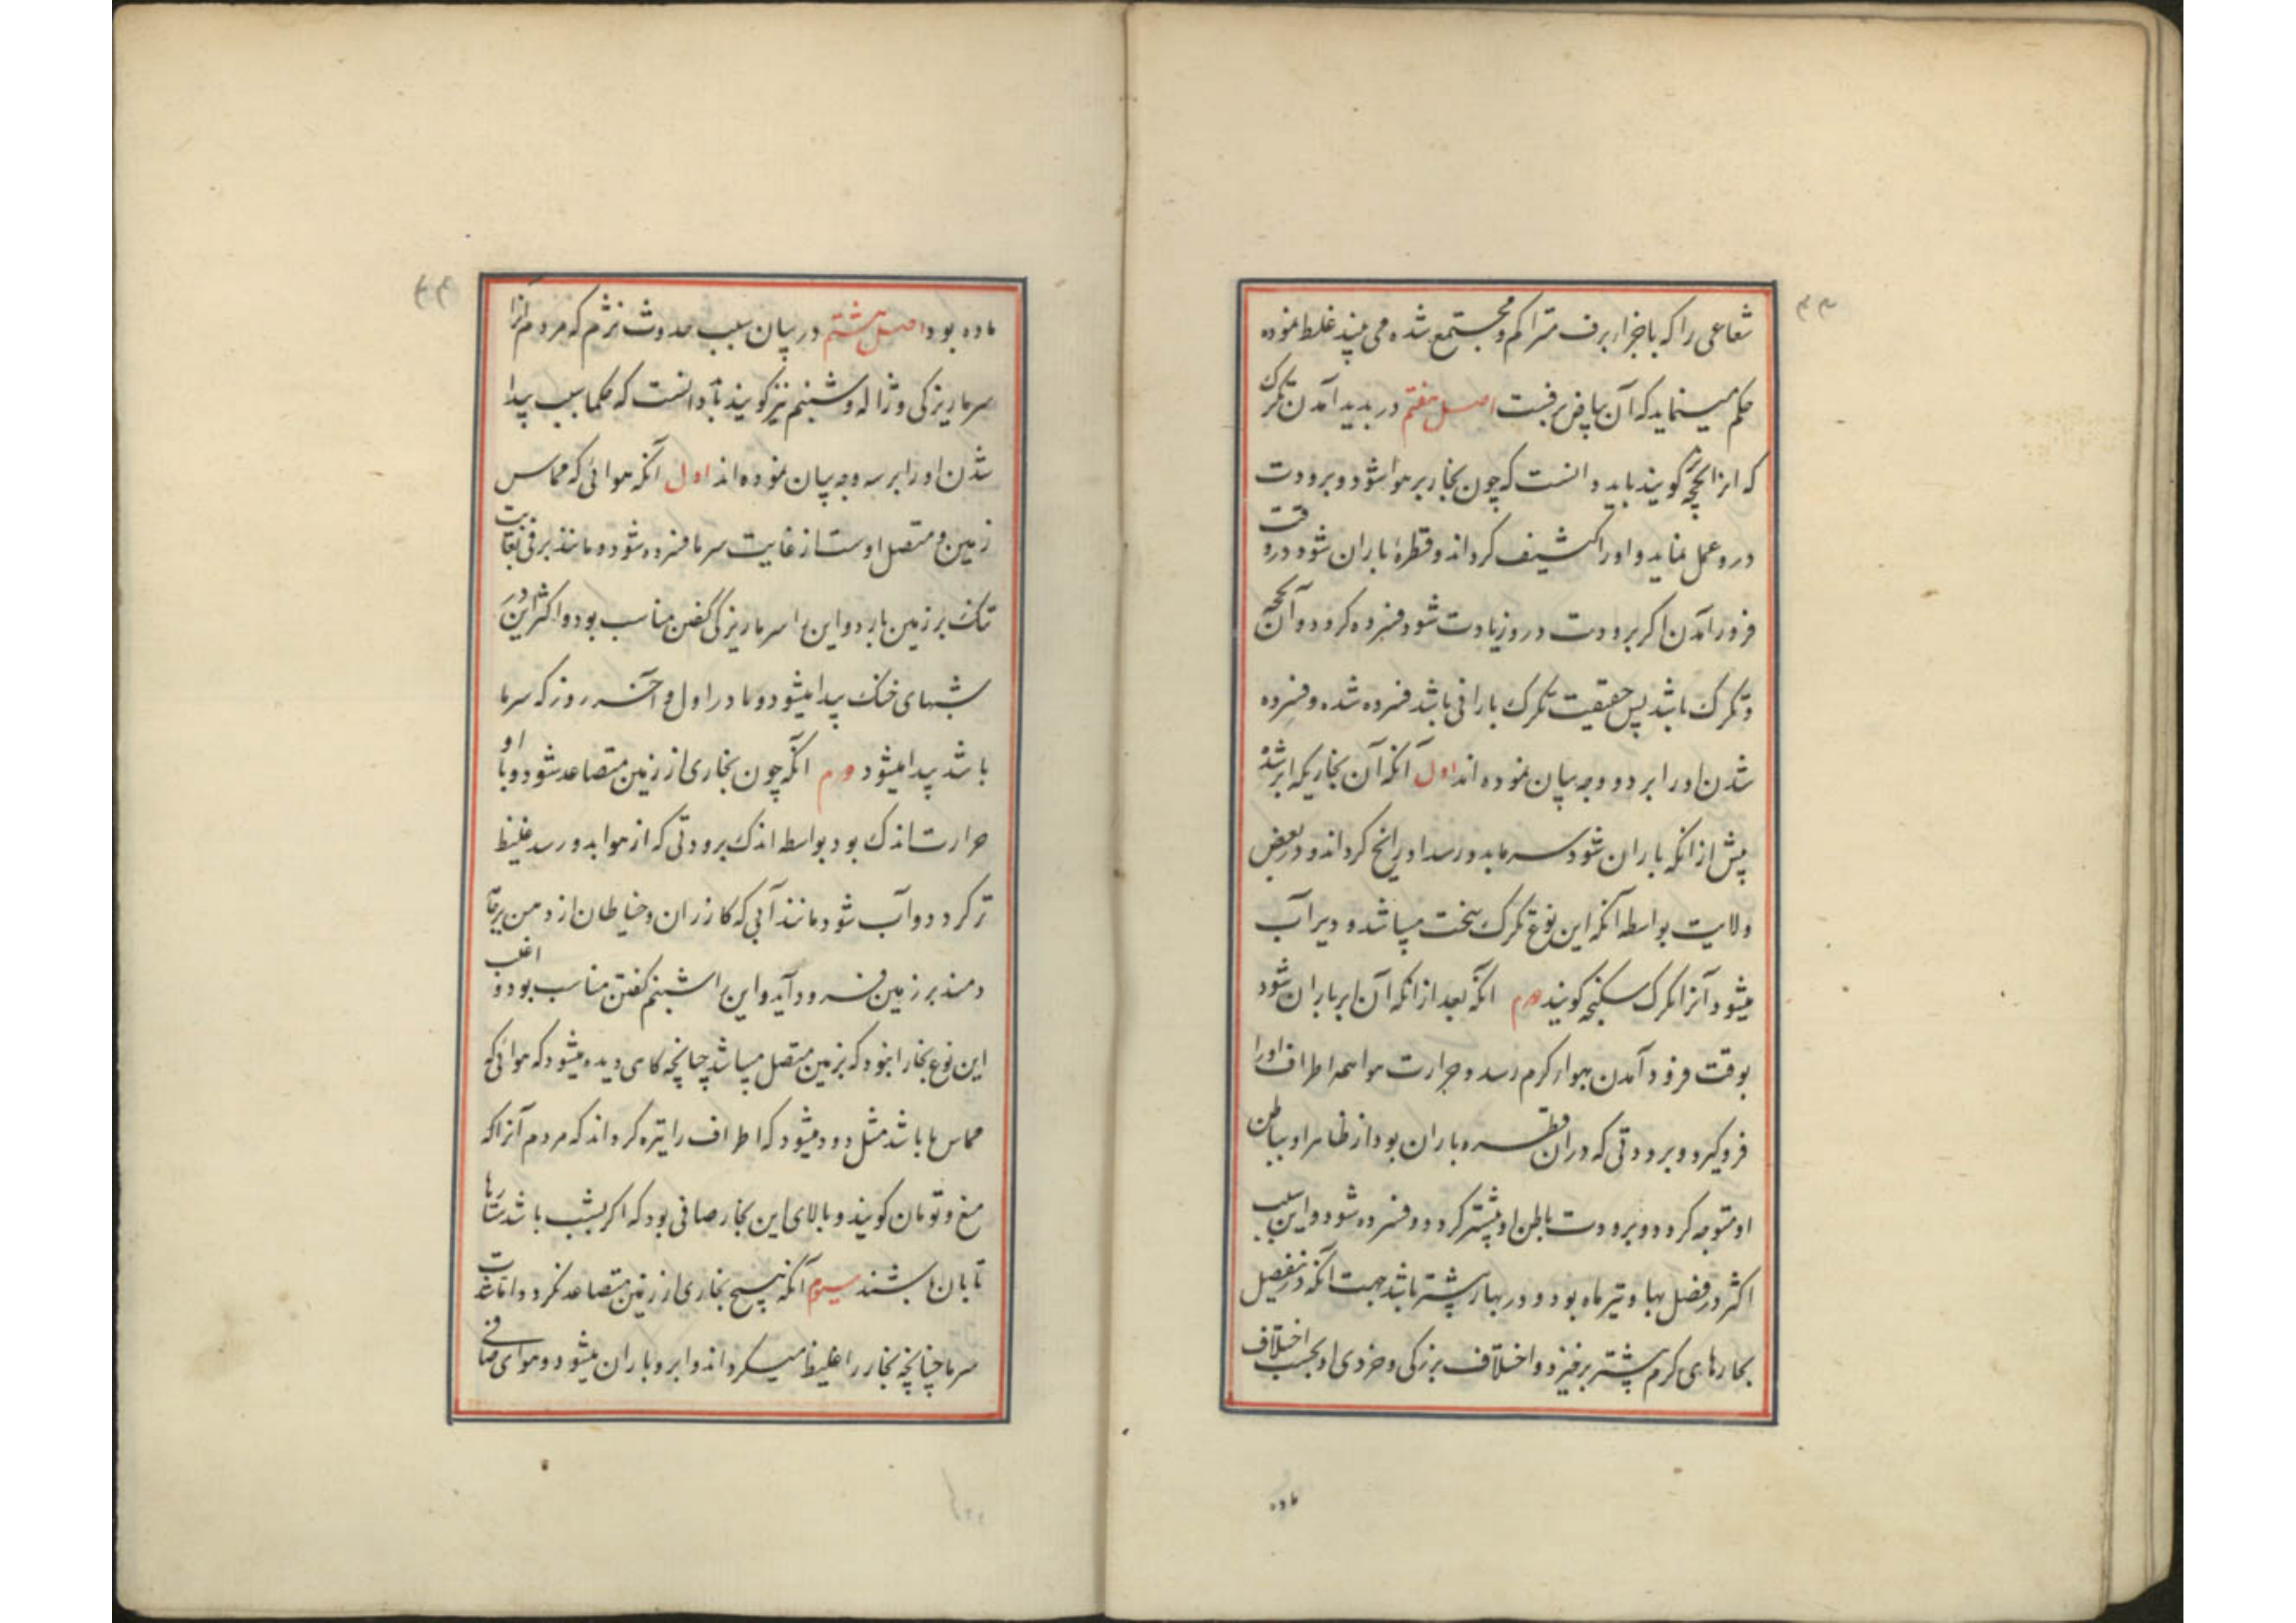 شعاعی را که باجزار برف متراکم و مجتمع شده می بیند غلط نموده
حکم مینماید که آن بیاض برفست اصل هفتم در بدید آمدن تگرک
که انرا یخچه گویند باید دانست که چون بخار بر هوا شود و برودت
درو عمل نماید و او را کثیف کرداند و قطرهٔ باران شود در وقت
فرور آمدن اکر برودت درو زیادت شود فسرده کردد و آن یخچه
و تگرک باشد پس حقیقت تگرک بارانی باشد فسرده شده و فسرده
شدن او را بر دو وجه بیان نموده اند اول آنکه آن بخاریکه ابر شده
پیش از انکه باران شود سرما بدو رسد او را یخ کرداند و در بعض
ولایت بواسطه آنکه این نوع تگرک سخت میباشد و دیر آب
میشود آنرا تگرک سنکنچه کویند دوم انکه بعد از انکه آن ابر باران شود
بوقت فرود آمدن بهوار کرم رسد و حرارت هوا همه اطراف او را
فروکیرد و برودتی که دران قطره باران بود از ظاهر او بباطن
او متوجه کردد و برودت باطن او بیشتر کردد و فسرده شود و این سبب
اکثر در فصل بهار و تیر ماه بود و در بهار بیشتر باشد جهت آنکه درین فصل
بخارهای کرم بیشتر برخیزد و اختلاف بزرکی و خردی او بحسب اختلاف
ماده
ماده بود اصل هشتم در بیان سبب حدوث نژم که مردم آنرا
سرماریزکی و ژاله و شبنم نیز کویند باید دانست که حکما سبب پیدا
شدن او را بر سه وجه بیان نموده اند اول آنکه هوائی که مماس
زمین و متصل اوست از غایت سرما فسرده شود و مانند برفی بغایت
تنک بر زمین بارد و این را سرماریزکی گفتن مناسب بود و اکثر این در
شبهای خنک پیدا میشود و یا در اول و آخر روز که سرما
باشد پیدا میشود دوم انکه چون بخاری از زمین متصاعد شود و با او
حرارت اندک بود بواسطه اندک برودتی که از هوا بدو رسد غلیظ
تر کردد و آب شود مانند آبی که کازران و خیاطان از دهن برجامه
دمند بر زمین فرود آید و این را شبنم کفتن مناسب بود و اغلب
این نوع بخار را بنود که بزمین متصل میباشد چنانچه کاهی دیده میشود که هوائی که
مماس ما باشد مثل دود میشود که اطراف را تیره کرداند که مردم آنرا که
میغ و تومان کویند و بالای این بخار صافی بود که اکر بشب باشد ستارها
تابان باشند سیوم آنکه هیچ بخاری از زمین متصاعد نکردد اما شدت
سرما چنانچه بخار را غلیظ میکرداند و ابر و باران میشود و هوای صافی